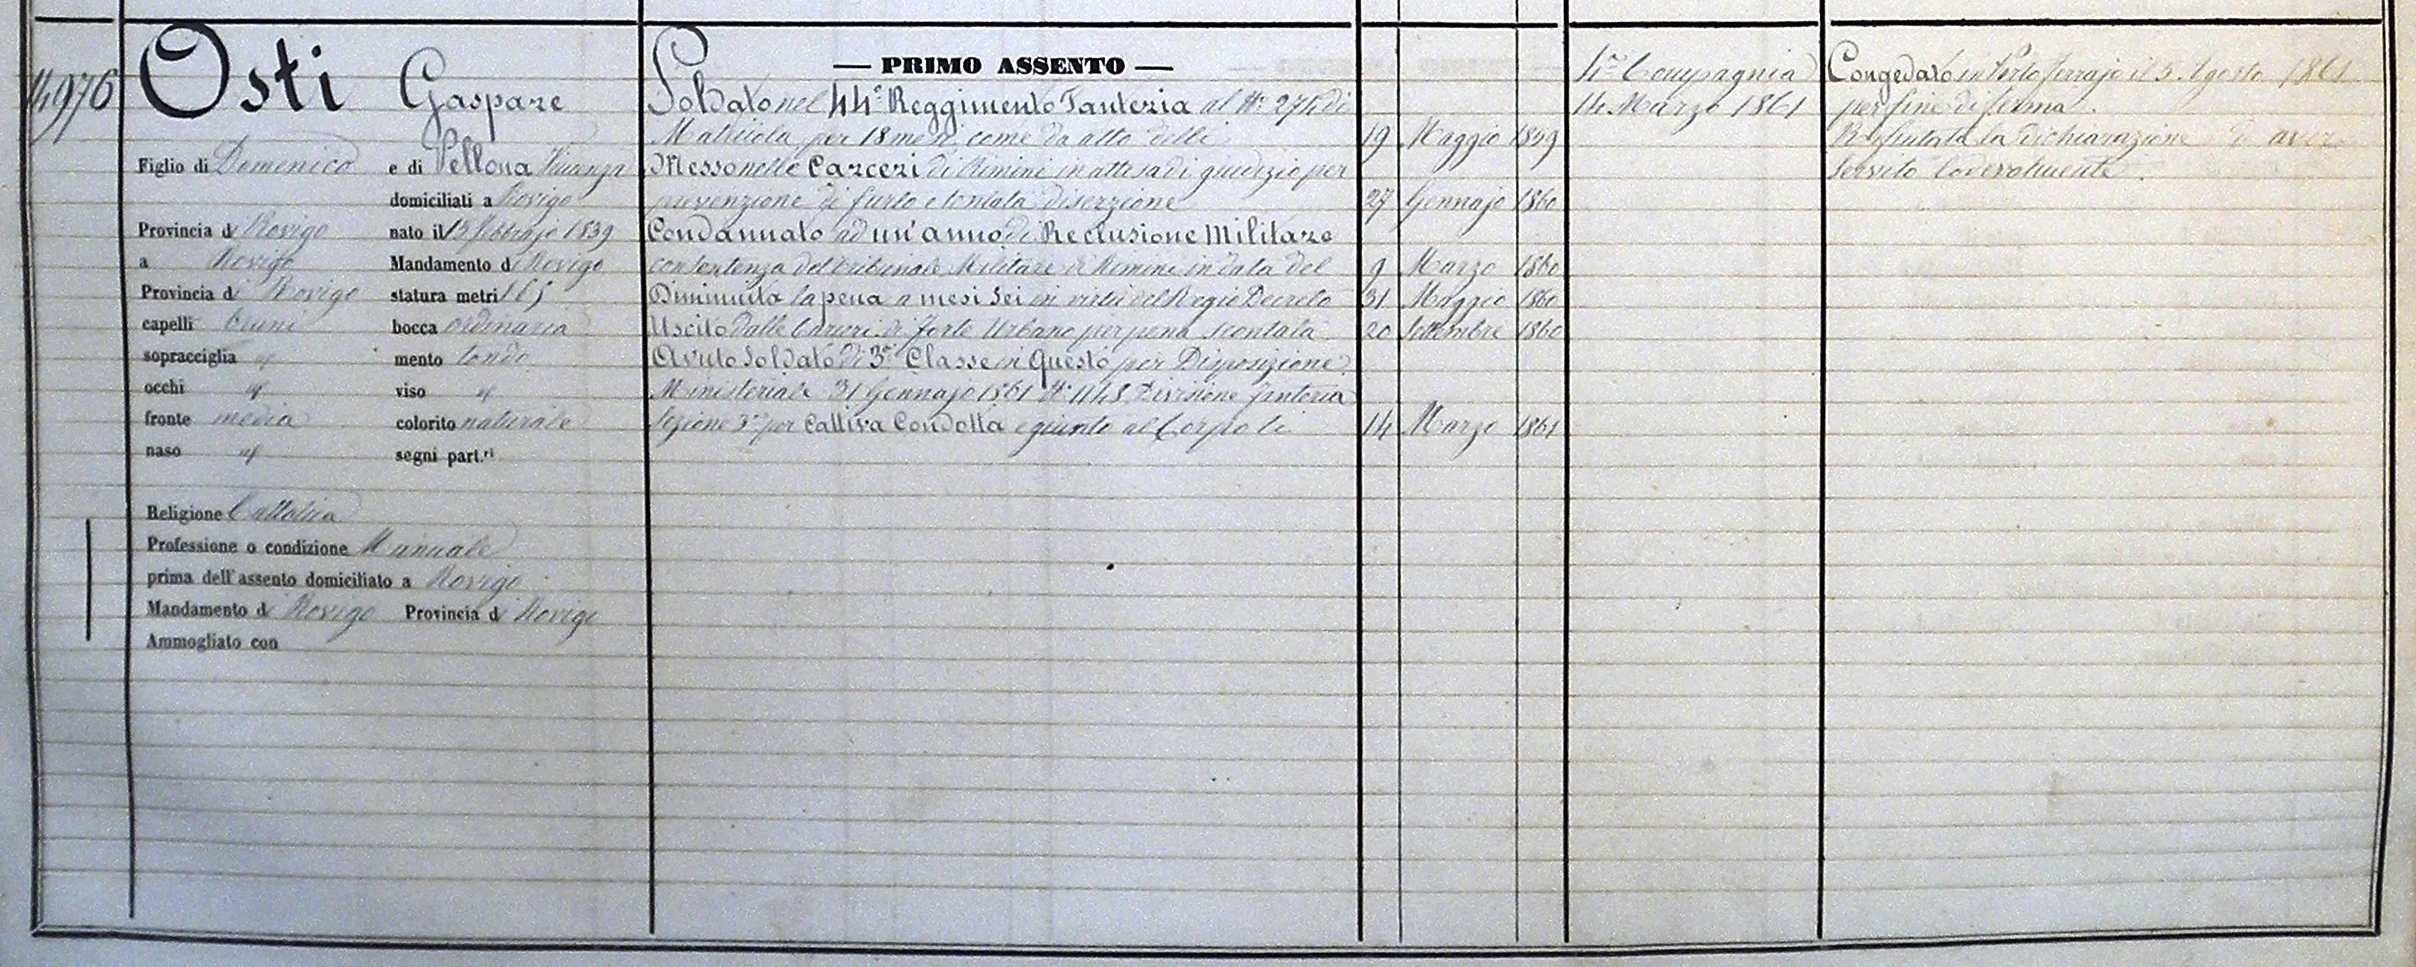 14976
Osti Gaspare
Figlio di Domenico e di Pellona Vicenza
domiciliati a Rovigo
Provincia di Rovigo nato il 13 febbrajo 1839
a Rovigo Mandamento di Rovigo
Provincia di Rovigo statura metri 1 65
capelli bruni bocca ordinaria
sopracciglia id mento tondo
occhi id viso id
fronte media colorito naturale
naso id segni part.ri
Religione Cattolica
Professione o condizione Manuale
prima dell'assento domiciliato a Rovigo
Mandamento di Rovigo Provincia di Rovigo
Ammogliato con
— PRIMO ASSENTO —
Soldato nel 44° Reggimento Fanteria al N° 274 di
Matricola per 18 mesi come da atto delli 19 Maggio 1859
Messo nelle Carceri di Rimini in attesa di giudizio per
prevenzione di furto e tentata diserzione 27 Gennajo 1860
Condannato ad un'anno di Reclusione Militare
con sentenza del tribunale Militare di Rimini in data del 9 Marzo 1860
Diminuita la pena a mesi sei in virtù del Regio Decreto 31 Maggio 1860
Uscito dalle Carceri di forte Urbano per pena scontata 20 Settembre 1860
Avuto Soldato di 3a Classe in Questo per Disposizione
Ministeriale 31 Gennajo 1861 N° 448 Divisione fanteria
Sezione 3a per Cattiva Condotta e giunto al Corpo li 14 Marzo 1861
4a Compagnia
14 Marzo 1861
Congedato in Porto ferrajo il 5 Agosto 1861
per fine di ferma.
Rifiutata la Dichiarazione di aver
servito lodevolmente.